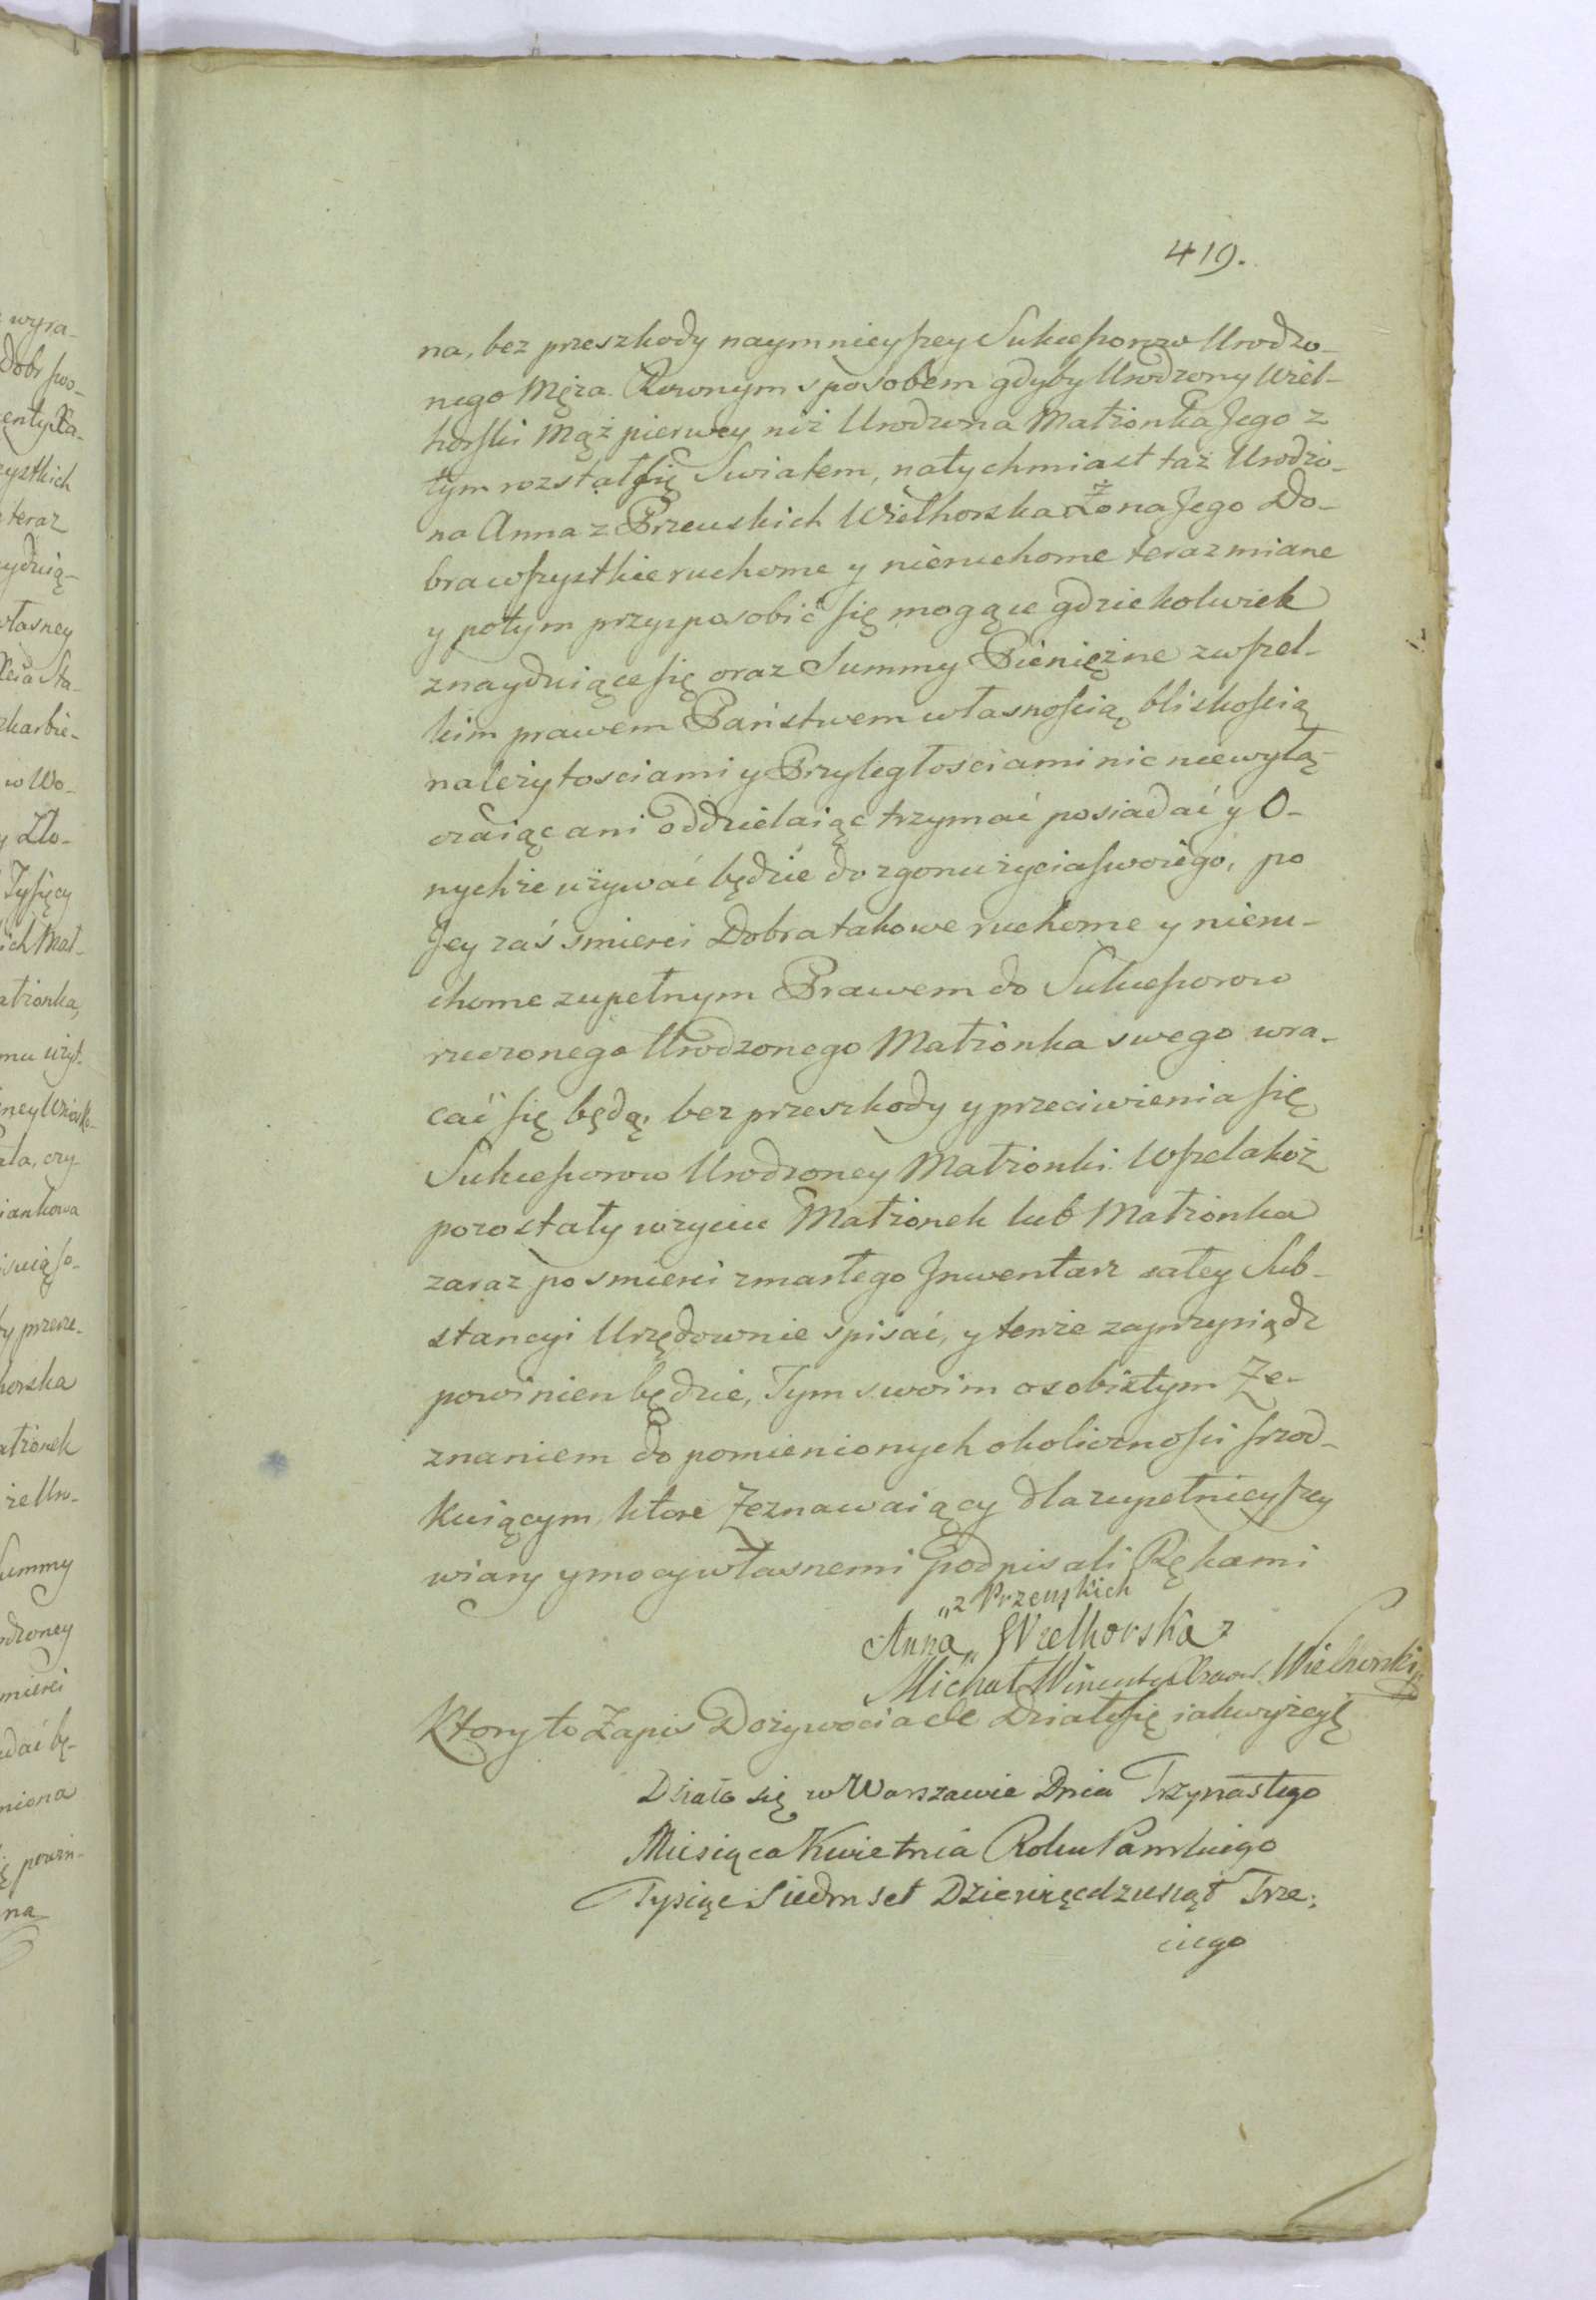 419.
na, bez przeszkody naymnieyszey Sukcessorow Urodzo-
nego Męża. Rownym sposobem gdyby Urodzony Wiel-
horski Mąż pierwey niż Urodzona Małżonka Jego z
tym rozstał się Swiatem, natychmiast taż Urodzo-
na Anna z Przeuskich Wielhorska Żona Jego Do-
bra wszystkie ruchome y nieruchome teraz miane
y potym przysposobić się mogące gdziekolwiek
znayduiące się oraz Summy Pieniężne z wszel-
kim prawem Państwem własnością bliskością
należytosciami y Przyległosciami nic niewyłą-
czaiąc ani oddzielaiąc trzymać posiadać y O-
nychże używać będzie do zgonu życia swoiego, po
Jey zaś smierci Dobra takowe ruchome y nieru-
chome zupełnym Prawem do Sukcessorow
rzeczonego Urodzonego Małżonka swego wra-
cać się będą, bez przeszkody y przeciwienia się
Sukcessorow Urodzoney Małżonki. Wszelakoż
pozostały w życiu Małżonek lub Małżonka
zaraz po smierci zmarłego Jnwentarz całey Sub-
stancyi Urzędownie spisać, y tenże zaprzysiądz
powinien będzie, Tym swoim osobistym Ze-
znaniem do pomienionych okoliczności szrod-
kuiącym, ktore Zeznawaiący dla zupełnieyszey
wiary y mocy własnemi Podpisali Rękami
"z Przeuskich
Anna „ Wielhorska
Michał Wincenty Wielhorski
Ktory to Zapis Dożywocia etc Działo się iak wyżey
Działo się w Warszawie Dnia Trzynastego
Miesiąca Kwietnia Roku Pańskiego
Tysiąc Siedmset Dziewięcdziesiąt Trze-
ciego
wyra-
Dobr swo-
ystkich
teraz
własney
w Wo-
y Zło-
Tysięcy
ich Mał-
ałżonka,
ała, czy-
iankowa
horska
ałżonek
Summy
dzoney
mierci
adać bę-
niona
ę powin-
na